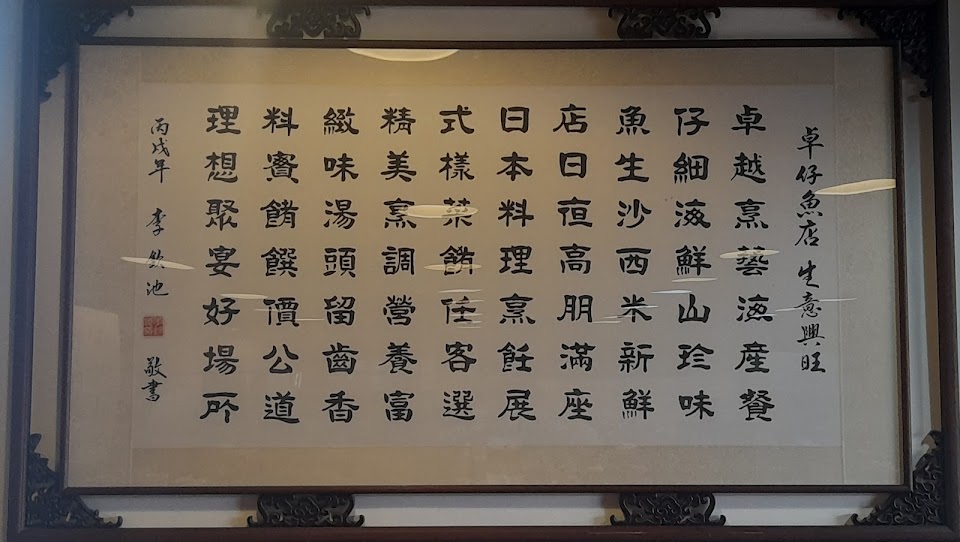 卓仔魚店 生意興旺
卓越烹藝海產餐
仔細海鮮山珍味
魚生沙西米新鮮
店日夜高朋滿座
日本料理烹飪展
式樣菜餚任客選
精美烹調營養富
緻味湯頭留齒香
料賓餚饌價公道
理想聚宴好場所
丙戌年 李欽池 敬書